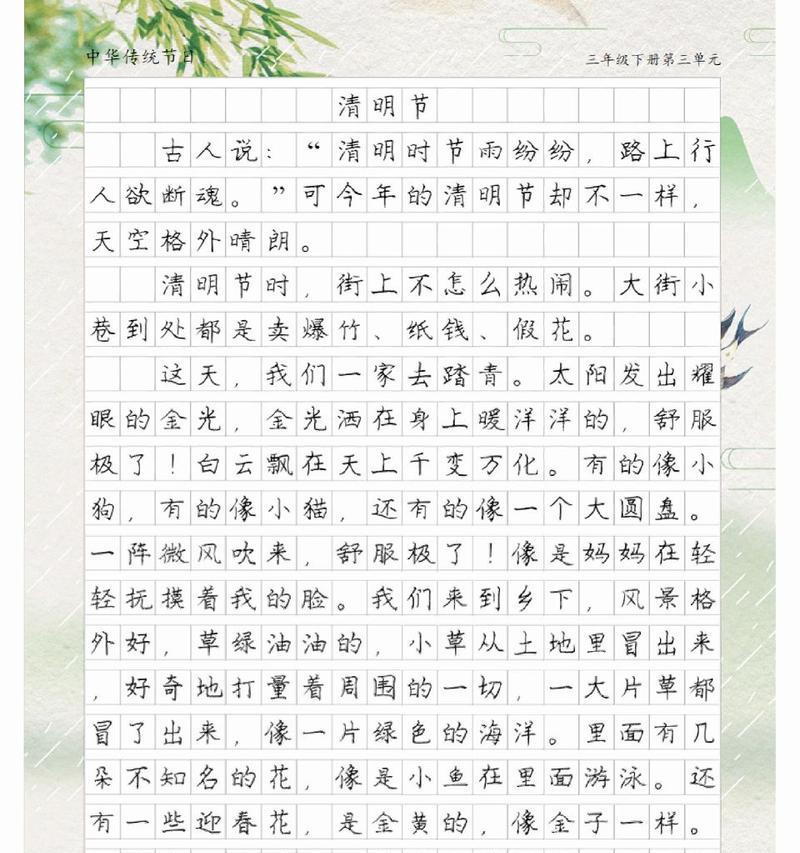 中华传统节日
三年级下册第三单元
清明节
古人说：“清明时节雨纷纷，路上行
人欲断魂。”可今年的清明节却不一样，
天空格外晴朗。
清明节时，街上不怎么热闹。大街小
巷到处都是卖爆竹、纸钱、假花。
这天，我们一家去踏青。太阳发出耀
眼的金光，金光洒在身上暖洋洋的，舒服
极了！白云飘在天上千变万化。有的像小
狗，有的像小猫，还有的像一个大圆盘。
一阵微风吹来，舒服极了！像是妈妈在轻
轻抚摸着我的脸。我们来到乡下，风景格
外好，草绿油油的，小草从土地里冒出来
，好奇地打量着周围的一切，一大片草都
冒了出来，像一片绿色的海洋。里面有几
朵不知名的花，像是小鱼在里面游泳。还
有一些迎春花，是金黄的，像金子一样。